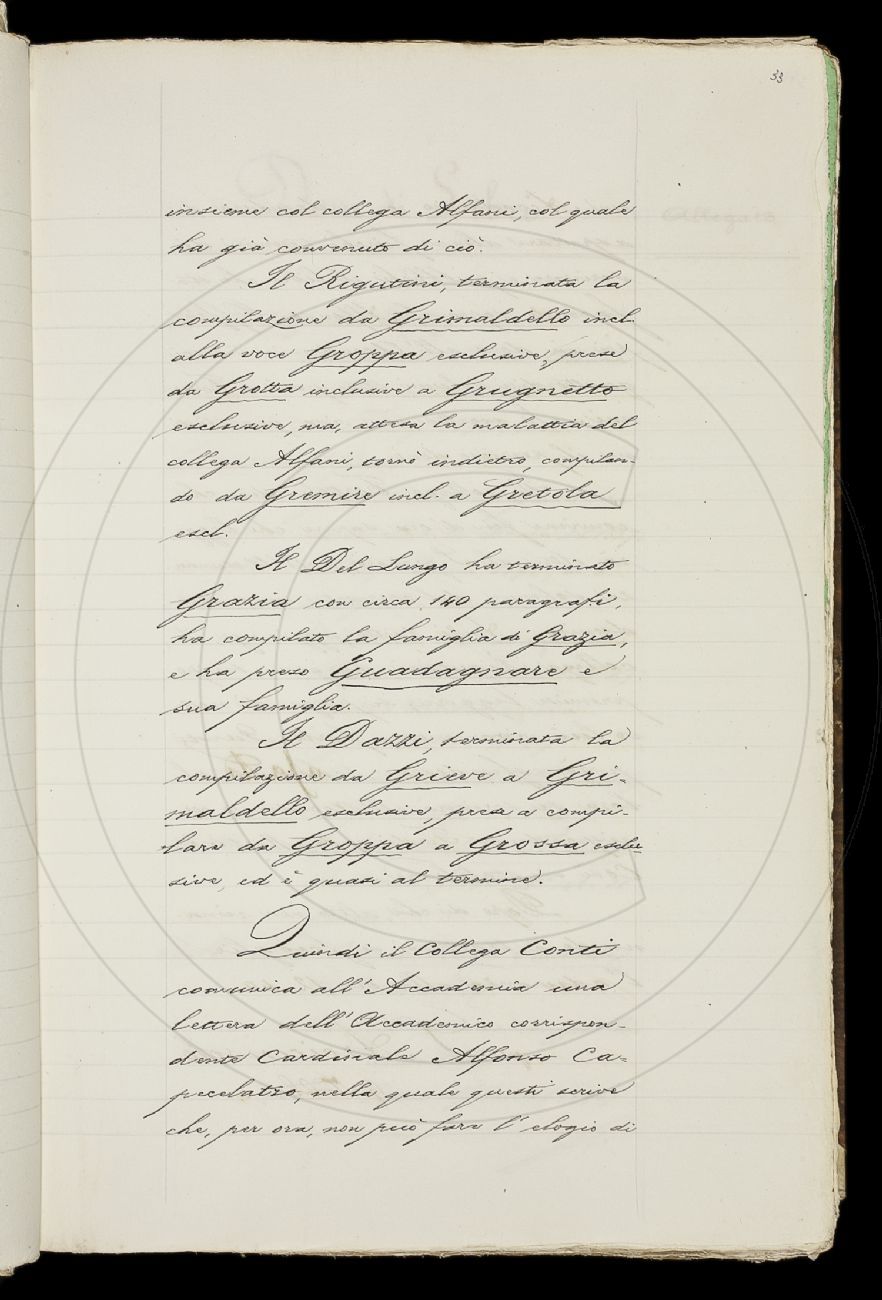 33
insieme col collega Alfani, col quale
ha già convenuto di ciò.
Il Rigutini, terminata la
compilazione da Grimaldello incl.
alla voce Groppa esclusive, prese
da Grotta inclusive a Grugnetto
esclusive, ma, attesa la malattia del
collega Alfani, tornò indietro, compilan-
do da Gremire incl. a Gretola
escl.
Il Del Lungo ha terminato
Grazia con circa 140 paragrafi,
ha compilato la famiglia di Grazia,
e ha preso Guadagnare e
sua famiglia.
Il Dazzi, terminata la
compilazione da Grieve a Gri-
maldello esclusive, prese a compi-
lare da Groppa a Grossa esclu-
sive, ed è quasi al termine.
Quindi il Collega Conti
comunica all'Accademia una
lettera dell'Accademico corrispon-
dente Cardinale Alfonso Ca-
pecelatro, nella quale questi scrive
che, per ora, non può fare l'elogio di